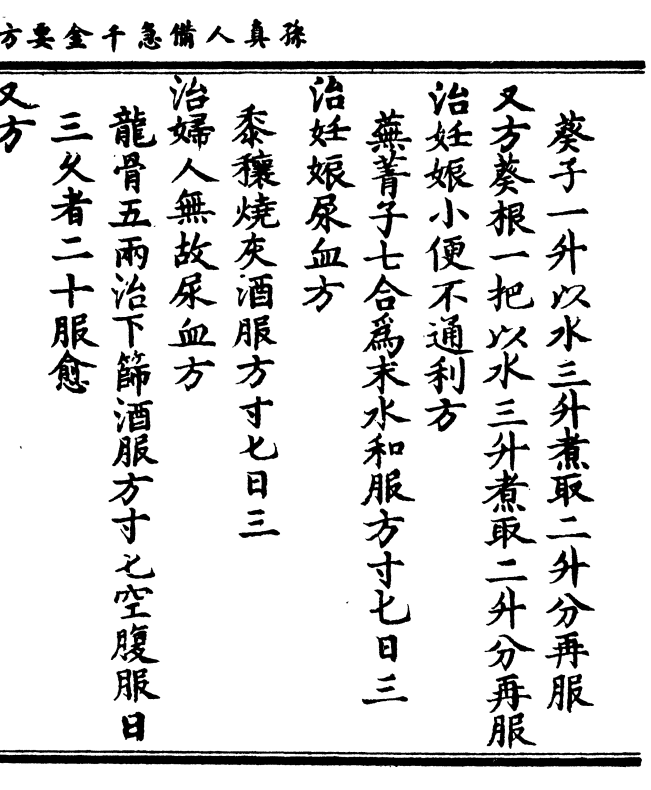 孫真人備急千金要方
葵子一升以水三升煮取二升分再服
又方葵根一把以水三升煮取二升分再服
治妊娠小便不通利方
蕪菁子七合爲末水和服方寸匕日三
治妊娠尿血方
黍穰燒灰酒服方寸匕日三
治婦人無故尿血方
龍骨五兩治下篩酒服方寸匕空腹服日
三久者二十服愈
又方